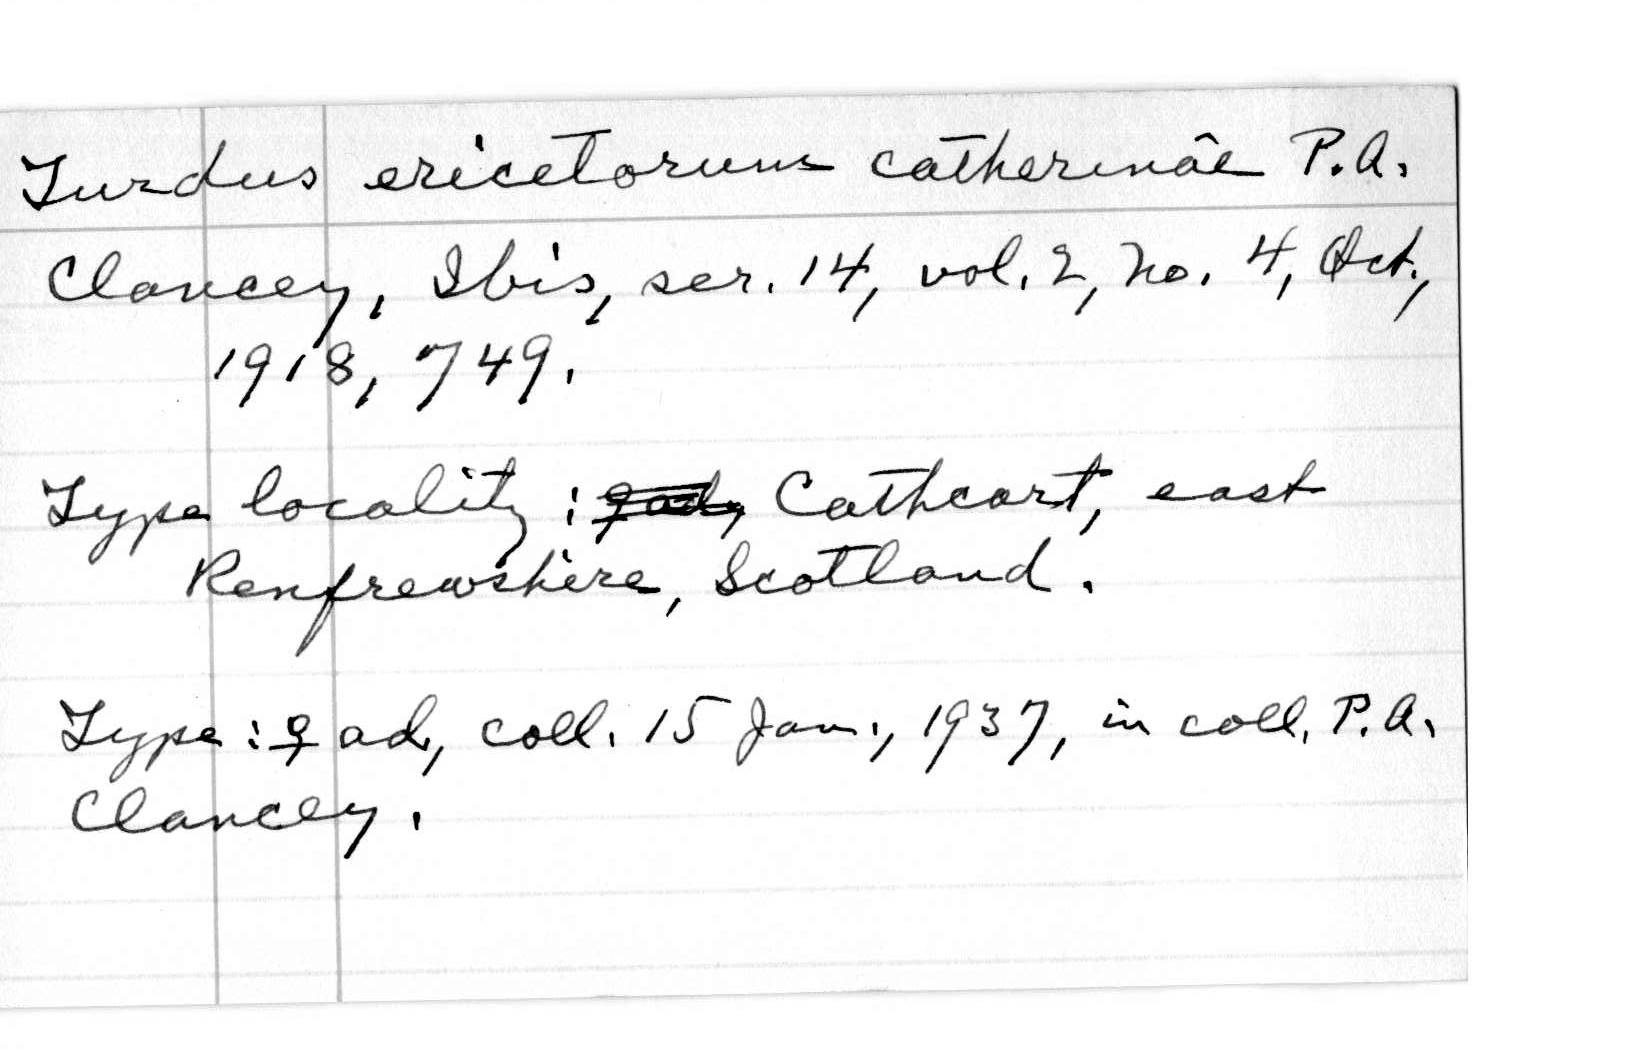 Turdus ericetorum catherinae P.A.
Clancey, Ibis, ser. 14, vol. 2, no. 4, Oct.,
1918, 749.
Type locality : ♀ ad, Cathcart, east
Renfrewshire, Scotland.
Type : ♀ ad, coll. 15 Jan., 1937, in coll. P.A.
Clancey.